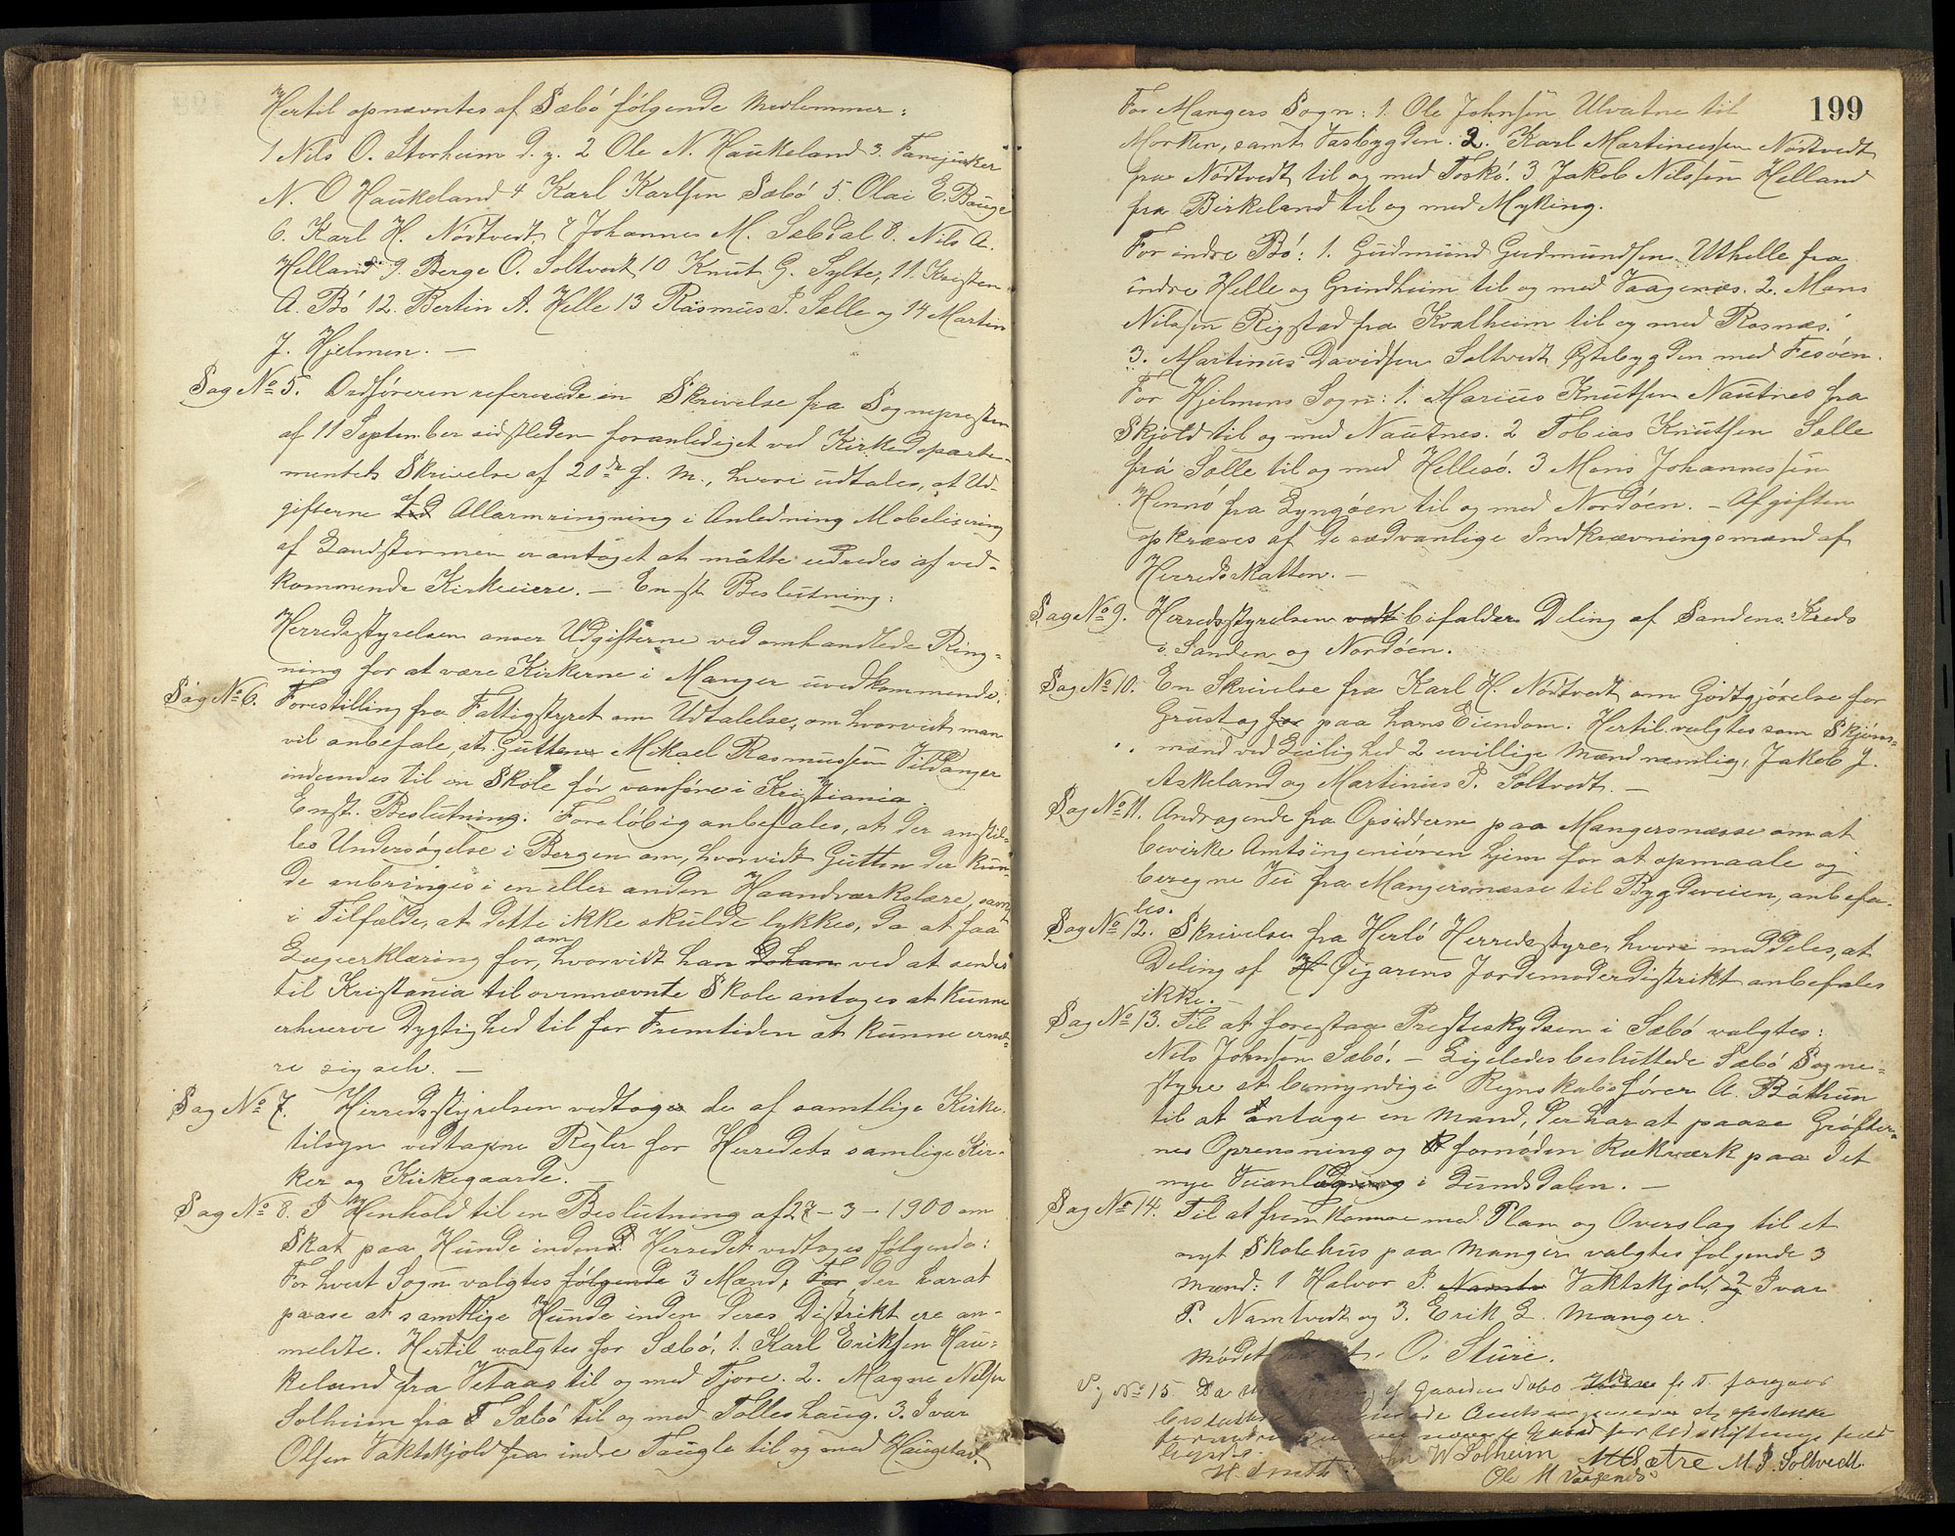 Hertil opnævntes af Sæbö fölgende Medlemmer:
1 Nils O. Storheim d. y. 2 Ole N. Haukeland 3. Fanejunker
N. O Haukeland 4 Karl Karlsen Sæbö 5. Olai E. Bauge
6. Karl H. Nörtvedt, 7 Johannes M. Sæbdal 8. Nils A.
Helland 9. Berge O. Soltvedt 10 Knut G. Sylte, 11. Kristen
A. Bö 12. Bertin A. Helle 13 Rasmus P. Sælle og 14 Martin
J. Hjelmen. —
Sag No 5. Ordföreren refererede en Skrivelse fra Sognepresten
af 11 September sidstleden foranlediget ved Kirkedeparte-
mentets Skrivelse af 20de f. M., hvori udtales, at Ud-
gifterne af ved Allarmringning i Anledning Mobilisering
af Landstormen er antaget at maatte udredes af ved-
kommende Kirkeeiere. — Enst. Beslutning:
Herredsstyrelsen anser Udgifterne ved omhandlede Ring-
ning for at være Kirkerne i Manger uvedkommende.
Sag No 6. Forestilling fra Fattigstyret om Udtalelse, om hvorvidt man
vil anbefale, at Gutten Mikael Rasmussen Vildanger
indsendes til en Skole for vanföre i Kristiania.
Enst. Beslutning: Forelöbig anbefales, at der anstil-
les Undersögelse i Bergen om, hvorvidt Gutten der kun-
de anbringes i en eller anden Haandværkslære, samt
i Tilfælde, at dette ikke skulde lykkes, da at faa
Lægeerklæring for, om hvorvidt han ved at sendes
til Kristania til ovennævnte Skole antages at kunne
erhverve Dygtighed til for Fremtiden at kunne ernæ-
re sig selv. —
Sag No 7. Herredsstyrelsen vedtoges de af samtlige Kirke-
tilsyn vedtagne Regler for Herredets samlige Kir-
ker og Kirkegaarde. —
Sag No 8. I Henhold til en Beslutning af 27 – 3 – 1900 om
Skat paa Hunde inden Herredet vedtoges fölgende:
For hvert Sogn valgtes fölgende 3 Mænd, For der har at
paase at samtlige Hunde inden deres Distrikt ere an-
meldte. Hertil valgtes for Sæbö, 1. Karl Eriksen Hau-
keland fra Vetaas til og med Fjore. 2. Magne Nilsen
Solheim fra Sæbö til og med Tolleshaug. 3. Ivar
Olsen Vaktskjold fra indre Taugle til og med Haugstad.
199
For Mangers Sogn: 1. Ole Johnsen Ulvatne til
Morken, samt Vasbygden. 2. Karl Martinussen Nördtvedt
fra Nördtvedt til og med Toskö. 3 Jakob Nilssen Helland
fra Birkeland til og med Myking.
For indre Bö: 1. Gudmund Gudmundsen Uthelle fra
indre Helle og Grindheim til og med Vaagenes. 2. Mons
Nilssen Rigstad fra Kvalheim til og med Rosnæs.
3. Martinus Davidsen Soltvedt Östebygden med Fesöen.
For Hjelmens Sogn: 1. Marius Knutsen Nautnes fra
Skjold til og med Nautnes. 2 Tobias Knutsen Sælle
fra Sælle til og med Hellesö. 3 Mons Johannessen
Hennö fra Lyngöen til og med Nordöen. – Afgiften
opkræves af de sædvanlige Indkrævningsmænd af
Herredsskatten. —
Sag No 9. Herredsstyrelsen vedt bifalder Deling af Sandens Kreds
i Sanden og Nordöen.
Sag No 10. En Skrivelse fra Karl H. Nördtvedt om Godtgjörelse for
Grustag for paa hans Eiendom. Hertil valgtes som Skjöns-
mænd ved Leilighed 2 uvillige Mænd nemlig, Jakob J.
Askeland og Martinus P. Soltvedt. —
Sag No 11. Andragende fra Opsidderne paa Mangersnæsse om at
bevirke Amtsingeniören hjem for at opmaale og
beregne Vei fra Mangersnæsse til Bygdeveien, anbefa-
les.
Sag No 12. Skrivelse fra Herlö Herredsstyre, hvori meddeles, at
Deling af Öigarens Jordemoderdistrikt anbefales
ikke. —
Sag No 13. Til at forestaa Presteskydsen i Sæbö valgtes:
Nils Johnsen Sæbö. – Ligeledes besluttede Sæbö Sogne-
styre at bemyndige Regnskabsförer A. Böthun
til at antage en Mand, der har at paase Gröfter-
nes Oprensning og fornöden Rækværk paa det
nye Veianlæg i Lundsdalen. —
Sag No 14. Til at fremkomme med Plan og Overslag til et
nyt Skolehus paa Manger valgtes fölgende 3
Mænd: 1 Halvor P. Namtv Vaktskjold, 2 Ivar
P. Namtvedt og 3. Erik L. Manger.
Mödet O. Sture.
No 15. Da af Gaarden Sæbö

H. Smith John W Solheim M Sætre M. P. Soltvedt
Ole M Vaagenes